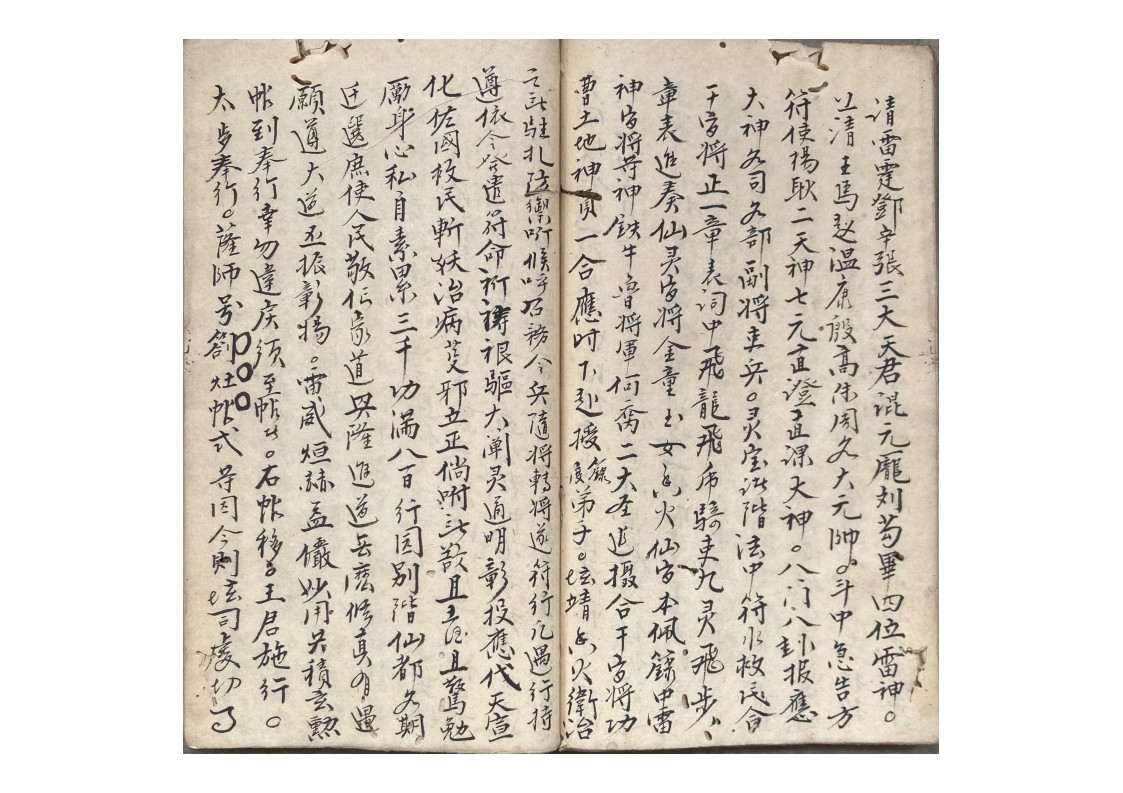 清雷霆鄧辛張三大天君混元龐刘苟畢四位雷神。
上清王馬赵溫康殷高朱周久大元帥。斗中急告方
符使揚耿二天神七元直澄直课大神。八门八卦报應
大神各司各部副将吏兵。灵宝诸階法中符水救民合
干官将正一章表词中飛龍飛虎騎吏九灵飛步
章表進奏仙灵官将金童玉女香火仙官本佩籙中雷
神官将苻神鉄牛魯将軍何喬二大圣追攝合干官将功
曹土地神員一合應时下赴授籙度弟子。坛靖香火衛治
之所駐扎防禦听候呼召務令兵隨将轉将逐符行凡遇行持
遵依令發遣符命祈禱禳驅大阐灵通明彰报應代天宣
化佐國救民斬妖治病茇邪立正倘咐三敌且
勵身心私自素累三千功满八百行圆别階仙都久期
迁選庶使人民敬仰家道興隆進道無魔修真有過
願遵大道丕振彰揚。雷威烜赫益儼妙用共積玄勲
帐到奉行幸勿違戾须至帖者。右帐移。王君施行。
太步奉行。薩師号箚灶帖式 尋因今則坛司虔切